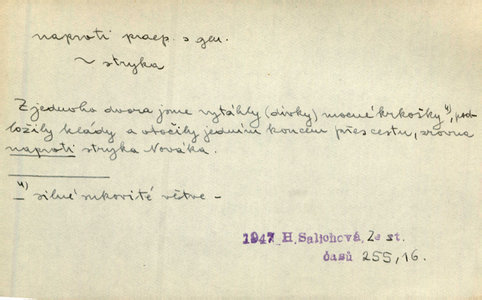 naproti praep. s gen.
~ stryka
Z jednoho dvora jsme vytáhly (dívky) mocné krkošky 4), pod-
ložily klády a otočily jedním koncem přes cestu, zrovna
naproti stryka Nováka.
4) silné sukovité větve -
1947 H. Salichová, Ze st.
časů 255, 16.